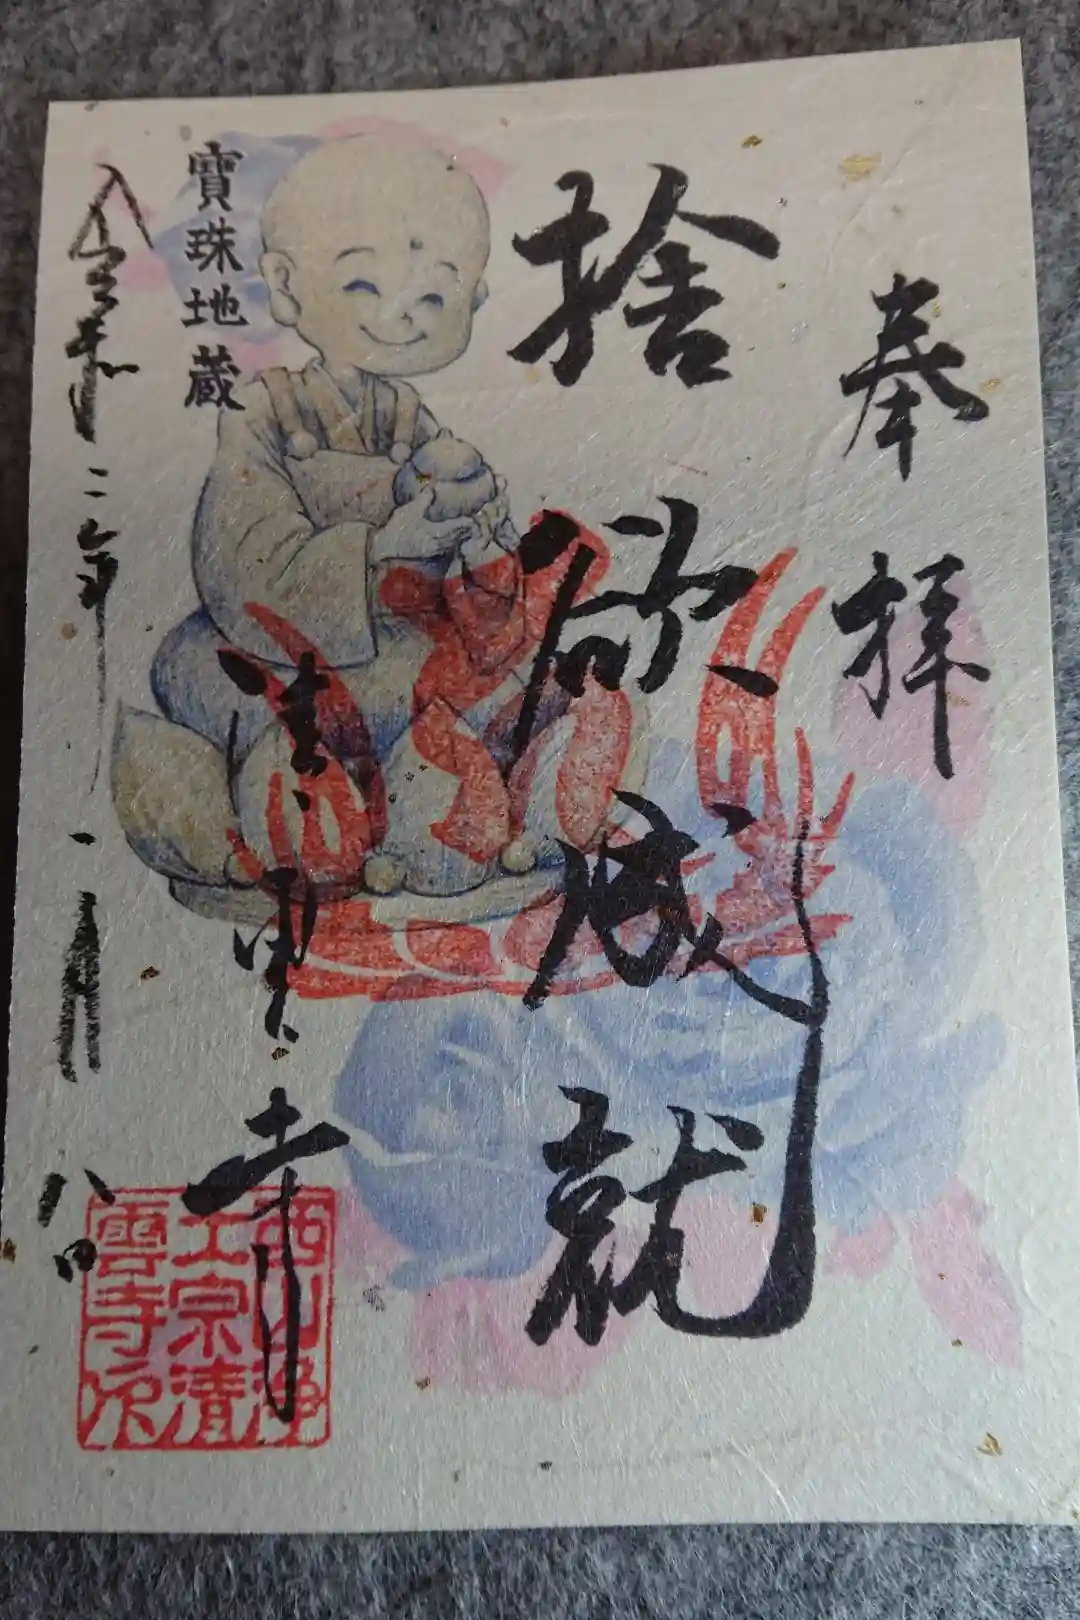 奉拝
捨欲成就
寶珠地蔵
清雲寺
令和二年 一月 八日
西山浄
土宗清
雲寺印